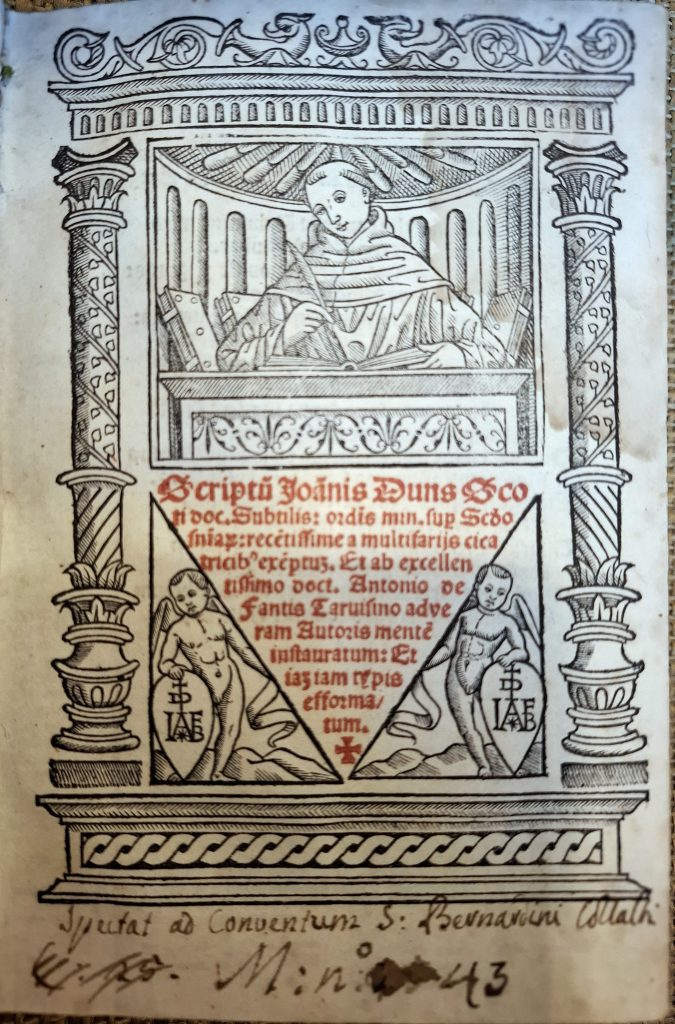 Scriptū Joānis Duns Sco
ti doc. Subtilis: ordīs min. sup Scḋo
sn̄iaꝝ: recētissime a multifarijs cica
tricibꝰ exēptuꝫ. Et ab excellen
tissimo doct. Antonio de
Fantis Taruisino adve
ram Autoris mentē
instauratum: Et
iaꝫ iam tꝑis
efforma/
tum.
S
IAFB
S
IAFB
Spectat ad Conventum S: Bernardini Collalti
M: n:º 43